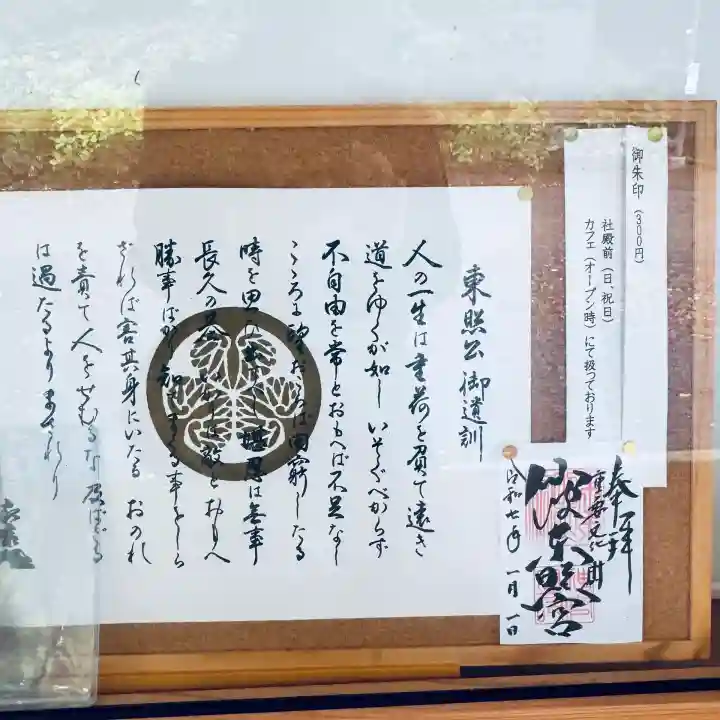 御朱印（３００円）
社殿前（日、祝日）
カフェ（オープン時）にて扱っております
東照公御遺訓
人の一生は重荷を負て遠き
道をゆくが如し いそぐべからず
不自由を常とおもへば不足なし
こゝろに望おこらば困窮したる
時を思ひ出すべし 堪忍は無事
長久の基 いかりは敵とおもへ
勝事ばかり知てまくる事をしら
ざれば害其身にいたる おのれ
を責て人をせむるな 及ばざる
は過たるよりまされり
奉拝
重要文化財
東照宮
令和七年 一月一日